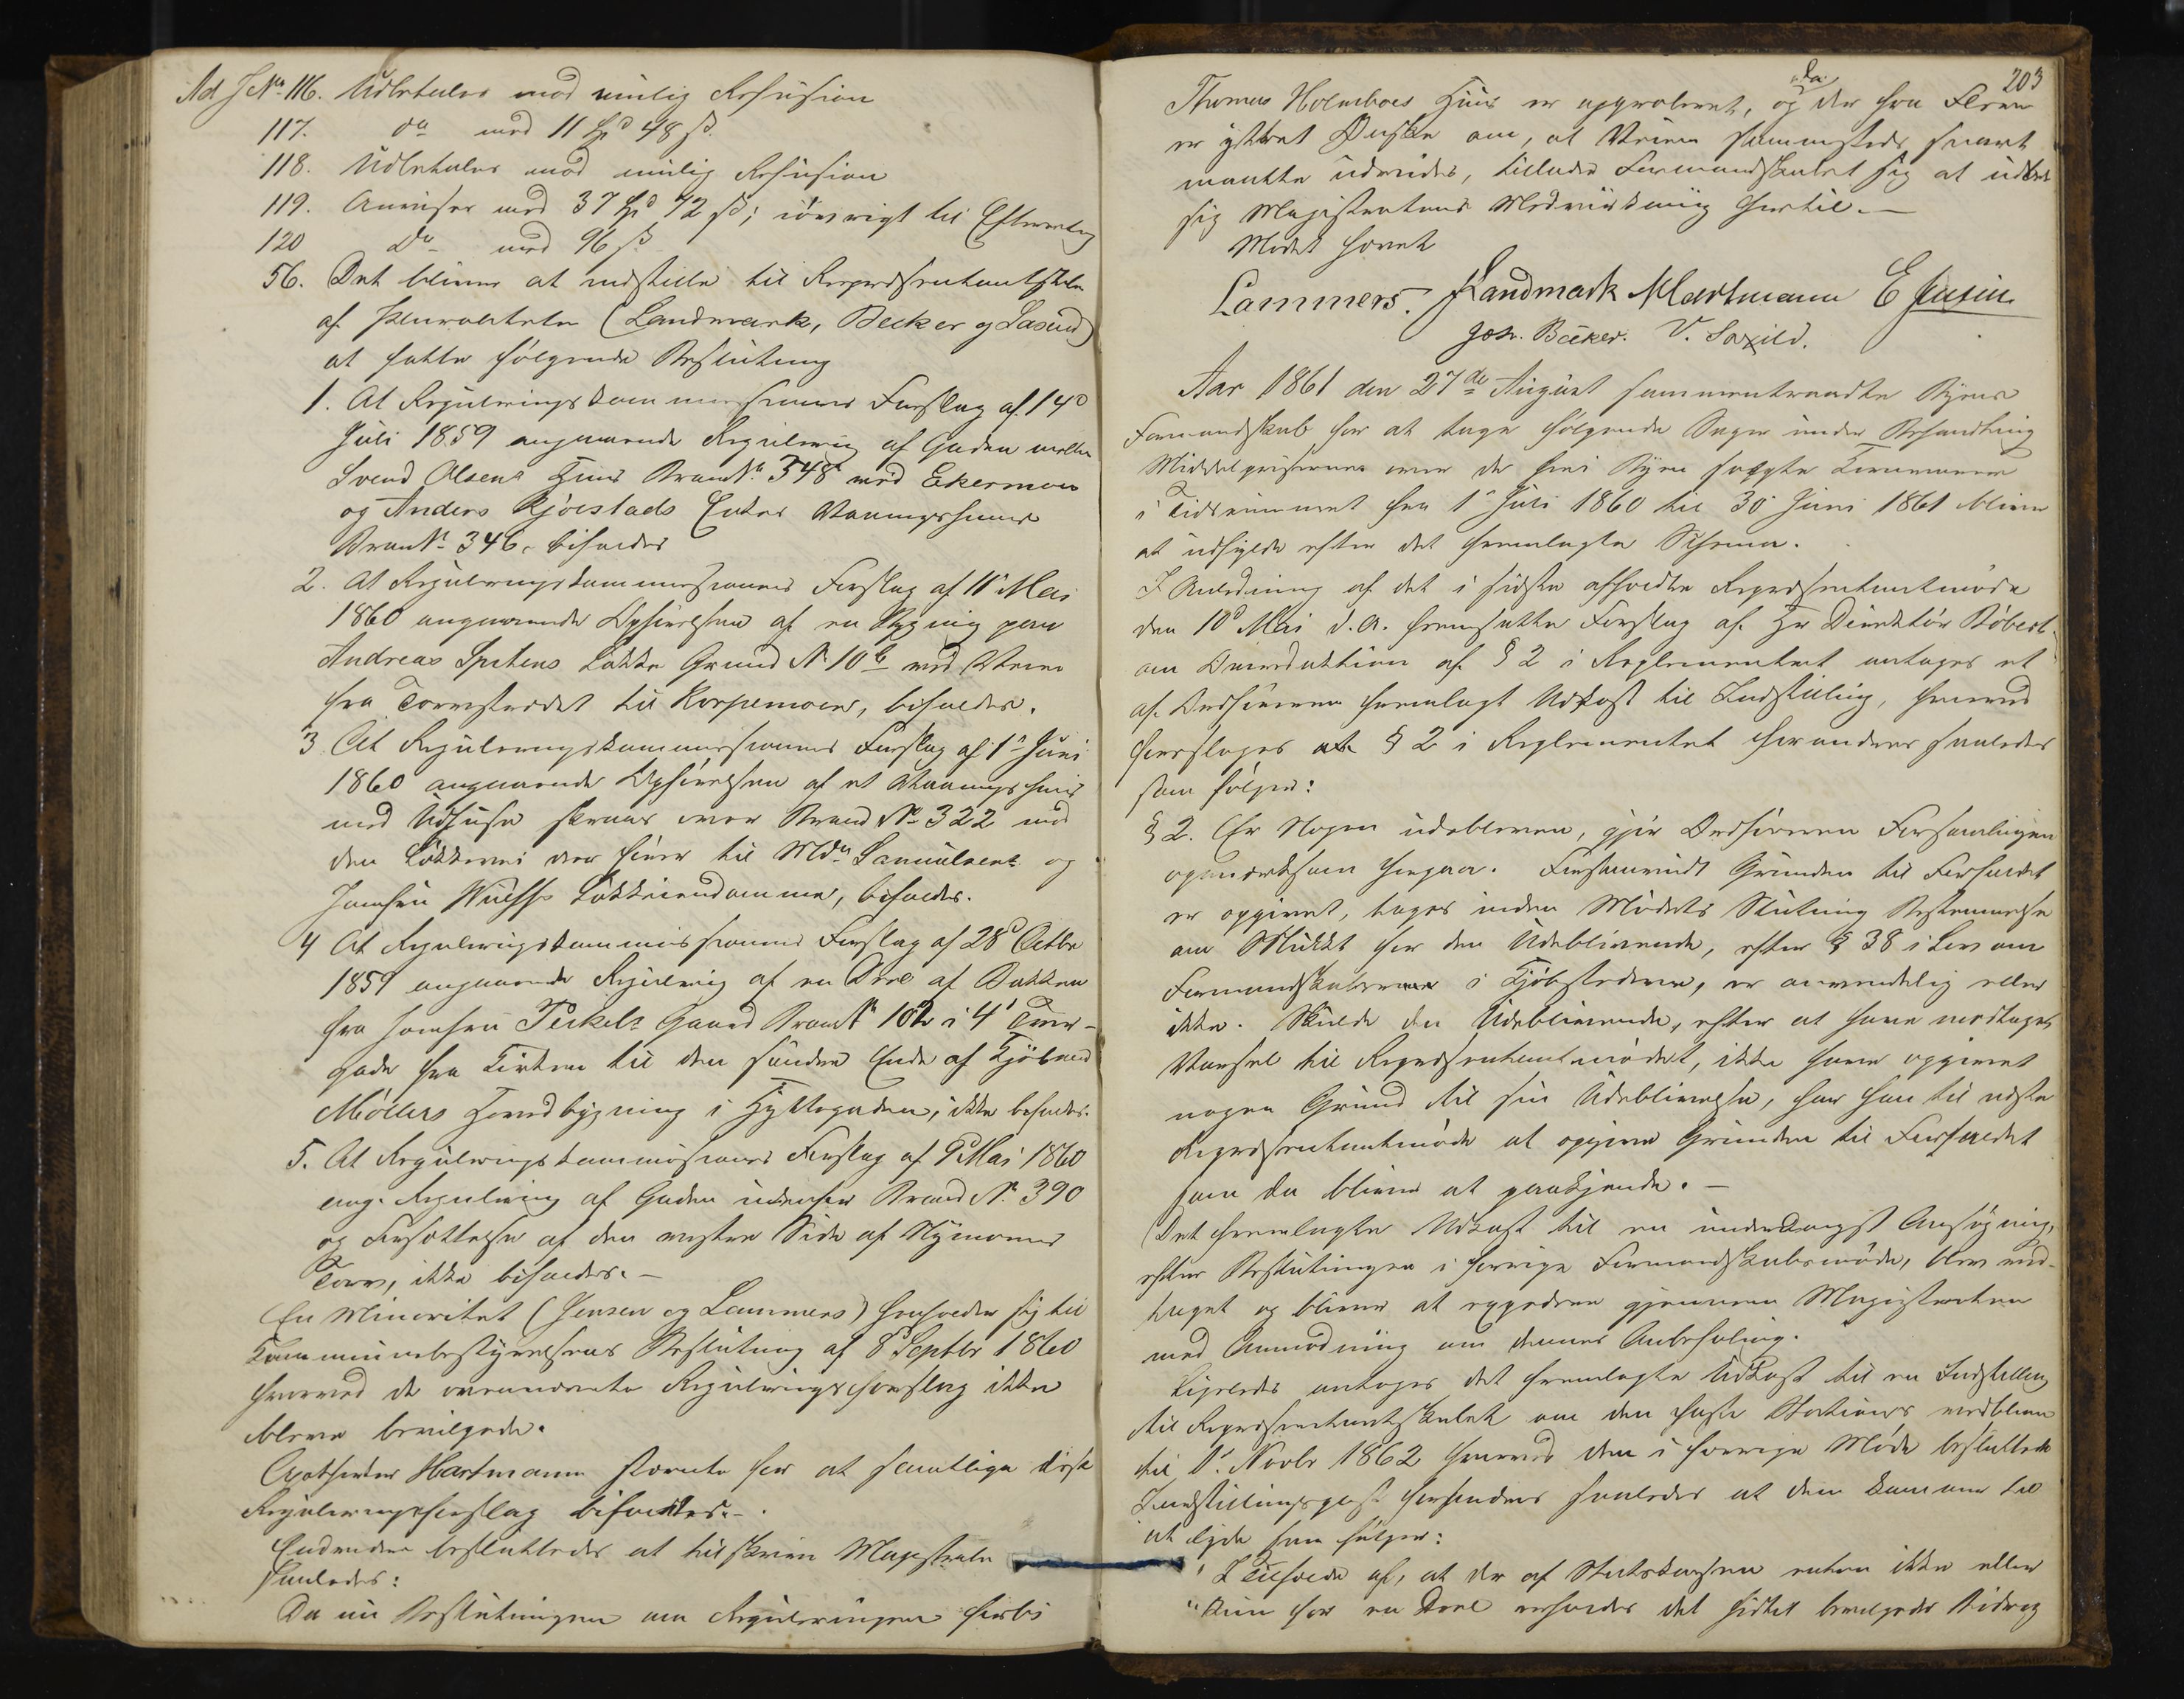 Ad J No 116. Udbetales mod vanlig Refusion
117. do med 11 Spd 48 ß.
118. Udbetales mod vanlig Refusion
119. Anvises med 37 Spd 72 ß; iøvrigt til Efterretng
120 Do med 96 ß
56. Det bliver at indstille til Repræsentantskabet
af Pluraliteten (Landmark, Becker og Saxild)
at fatte følgende Beslutning
1. At Reguleringskommissionens Forslag af 14d
Juli 1859 angaaende Regulering af Gaden mellem
Svend Olsens Huus BrandNo 348 ved Ekermoen
og Anders Kjørstads Enkes Vaaningshuus
BrandNo 346, bifaldes
2. At Reguleringskommissionens Forslag af 11t Mai
1860 angaaende Opførelsen af en Bygning paa
Andreas Spitens Løkke Grund No 10b ved Veien
fra Torvstrædet til Korpemoen, bifaldes.
3. At Reguleringskommissionens Forslag af 1s Juni
1860 angaaende Opførelsen af et Vaaningshuus
med Udhuse skraas over Brand No 322 ved
den Løkkevei der fører til Mdm Samuelsens og
Jomfru Wulffs Løkkeeiendomme, bifaldes.
4 At Reguleringskommissionens Forslag af 28d Octbr
1859 angaaende Regulering af en Deel af Bakken
fra Jomfru Peckels Gaard BrandNo 102 i 4d Tver-
gade fra Kirken til den søndre Ende af Kjøbmd
Møllers Hovedbygning i Hyttegaden, ikke bifaldes.
5. At Reguleringskommissionens Forslag af 9d Mai 1860
ang. Regulering af Gaden udenfor Brand No 390
og Forsættelse af den vestre Side af Nymoens
Torv, ikke bifaldes.—
En Minoritet (Jensen og Lammers) henholder sig til
Kommunebestyrelsens Beslutning af 8d Septbr 1860
hvorved de ovennævnte Reguleringsforslag ikke
bleve bevilgede.
Apotheker Hartmann stemte for at samtlige disse
Reguleringsforslag bifaldtes.—
Endvidere besluttedes at tilskrive Magistraten
saaledes:
Da nu Beslutningen om Reguleringen forbi
203
Thomas Holmboes Huus er approberet, og da der fra Flere
er yttret Ønske om, at Veien sammesteds snart
maatte udvides, tillader Formandskabet sig at udbede
sig Magistratens Medvirkning hertil.—
Mødet hævet
Lammers. Landmark MHartmann E Jensen
Joh. Becker. V. Saxild.
Aar 1861 den 27de August sammentraadte Byens
Formandskab for at tage følgende Sager under Behandling
Middelpriserne over de her i Byen solgte Kornvarer
i Tidsrummet fra 1s Juli 1860 til 30 Juni 1861 bliver
at udfylde efter det fremlagte Schema.
I Anledning af det i sidste afholdte Repræsentantmøde
den 10d Mai d.A. fremsatte Forslag af Hr Direktør Røbert
om Omredaktion af § 2 i Reglementet antages et
af Ordføreren fremlagt Udkast til Indstilling, hvorved
foreslaaes at § 2 i Reglementet forandres saaledes
som følger:
§ 2. Er Nogen udebleven, gjør Ordføreren Forsamlingen
opmærksom herpaa. Forsaavidt Grunden til Forfaldet
er opgivet, tages inden Mødets Slutning Bestemmelse
om Mulkt for den Udeblivende, efter § 38 i Lov om
Formandskaberne i Kjøbstæderne, er anvendelig eller
ikke. Skulde den Udeblivende, efter at have modtaget
Varsel til Repræsentantmødet, ikke have opgivet
nogen Grund til sin Udeblivelse, har han til næste
Repræsentantmøde at opgive Grunden til Forfaldet
som da bliver at paakjende.—
Det fremlagte Udkast til en underdanigst Ansøgning,
efter Beslutningen i forrige Formandskabsmøde, blev ved-
taget og bliver at expedere gjennem Magistraten
med Anmodning om dennes Anbefaling.
Ligeledes antages det fremlagte Udkast til en Indstilling
til Repræsentantskabet om den faste Stations vedbliven
til 1s Novbr 1862 hvorved den i forrige Møde besluttede
Indstillingspost forandres saaledes at den kommer til
at lyde som følger:
"I Tilfælde af, at der af Statskassen enten ikke eller
"kun for en Deel erholdes det sidst bevilgede Bidrag